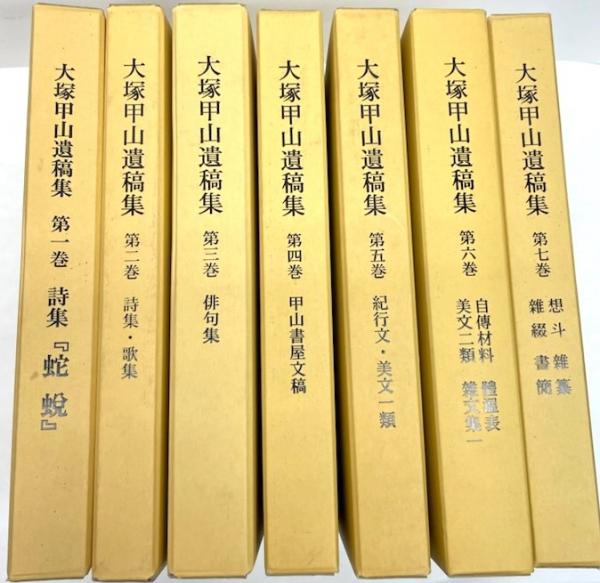 大塚甲山遺稿集 第一巻 詩集『蛇蛻』
大塚甲山遺稿集 第二巻 詩集・歌集
大塚甲山遺稿集 第三巻 俳句集
大塚甲山遺稿集 第四巻 甲山書屋文稿
大塚甲山遺稿集 第五巻 紀行文・美文一類
大塚甲山遺稿集 第六巻
自傳材料 體溫表
美文二類 雜文集一
大塚甲山遺稿集 第七巻
想斗 雜纂
雜綴 書簡